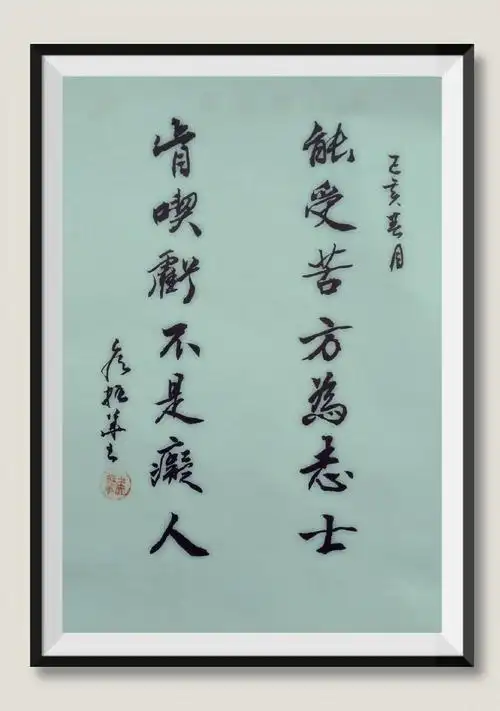 己亥春月
能受苦方為志士
肯喫虧不是癡人